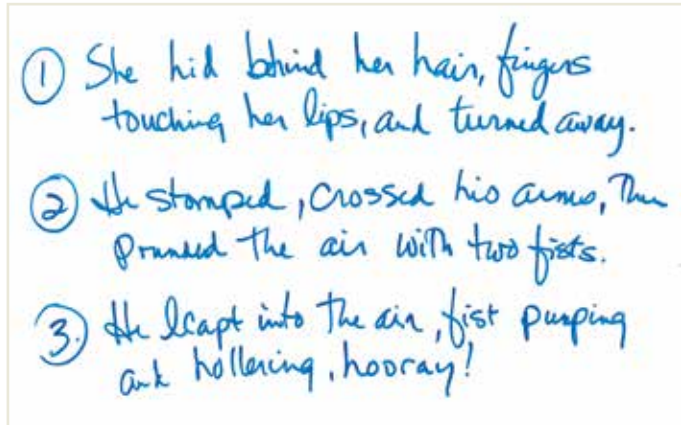 ① She hid behind her hair, fingers
touching her lips, and turned away.
② He stomped, crossed his arms, then
pounded the air with two fists.
③. He leapt into the air, fist pumping
and hollering, hooray!